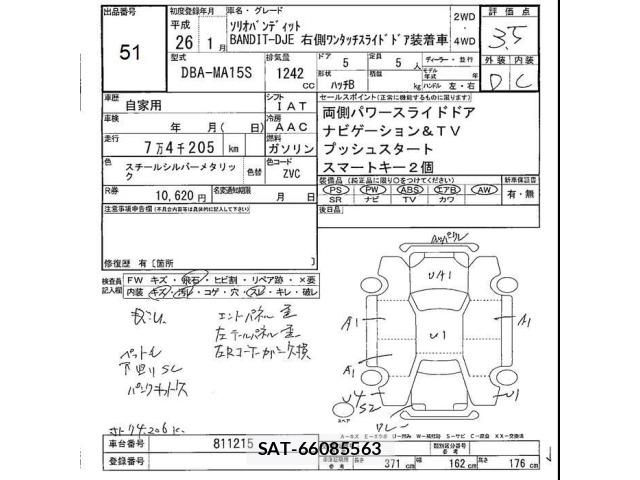 出品番号
51
初度登録年月
平成
26年 1月
車名・グレード
ソリオバンディット
BANDIT-DJE 右側ワンタッチスライドドア装着車
2WD
・
4WD
評価点
3.5
外装 内装
D C
型式
DBA-MA15S
排気量
1242 CC
ドア
5
形状
ハッチB
定員
5 人
積載
kg
ディーラー・並行
モデル年式 年式
ハンドル 左・右
車歴
自家用
シフト
IAT
車検
年 月(日)
冷房
AAC
走行
7万4千205 km
燃料
ガソリン
色
スチールシルバーメタリック
色替
色コード
ZVC
R券
10,620 円
名変通知期限
月 日
セールスポイント(正常に機能するものに限ります)
両側パワースライドドア
ナビゲーション&TV
プッシュスタート
スマートキー2個
装備品(純正品に限り○をつけてください)
PS PW ABS エアB AW
SR ナビ TV カワ
新車保証書
有・無
後日品
注意事項申告欄(不具合内容等は具体的に記入して下さい)
修復歴 有[箇所
検査員記入欄
FW キズ・飛石・ヒビ割・リペア跡・×要
内装 キズ・汚レ・コゲ・穴・スレ・キレ・破レ
エントパネル
左テールパネル
左Rコーナーカバー欠損
ペットモ
下廻りSC
UA1
U1
A1
A1
A1
A1
U4
S2
U1
スペア
A=キズ E=エクボ U=凹み W=補修跡 S=サビ C=腐食 XX=交換済
車台番号
811215
登録番号
SAT-66085563
車体証明用
参考
長さ
371 cm
類別区分番号
参考
幅
162 cm
高さ
176 cm